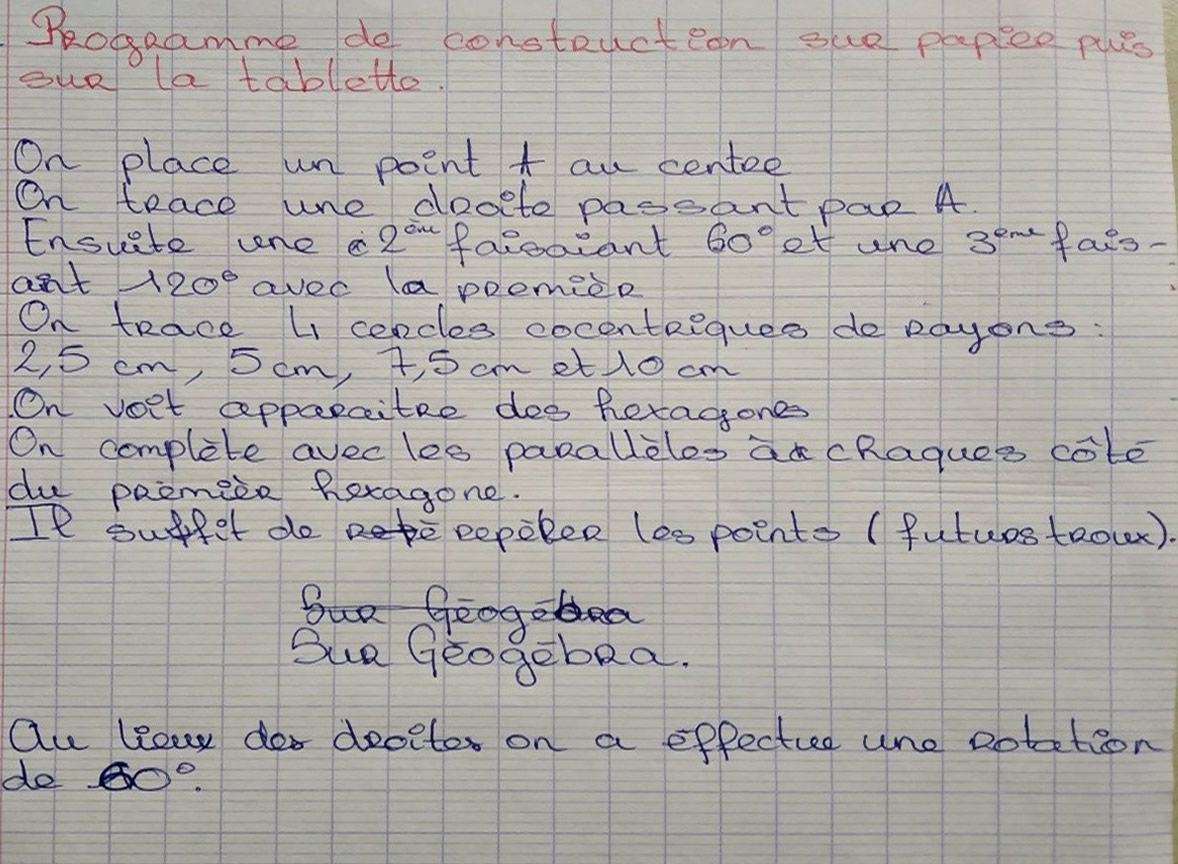 Programme de construction sur papier puis
sur la tablette.
On place un point A au centre
On trace une droite passant par A.
Ensuite une 2ème faisaiant 60° et une 3ème fais-
ant 120° avec la première
On trace 4 cercles cocentriques de rayons :
2,5 cm, 5 cm, 7,5 cm et 10 cm
On voit apparaitre des hexagones
On complète avec les parallèles à chaques côté
du premièr hexagone.
Il suffit de repèrer les points (futurs troux).
Sur Géogébra
Sur Géogébra.
Au lieux des droites on a éffectuer une rotation
de 60°.